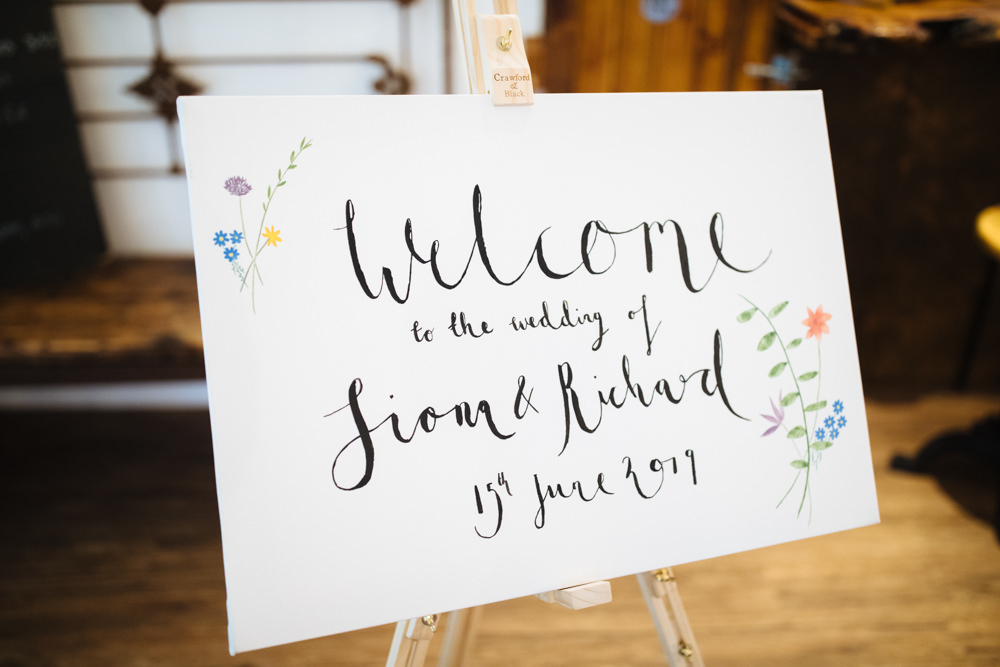 Crawford
&
Black
Welcome
to the wedding of
Fiona & Richard
15th June 2019